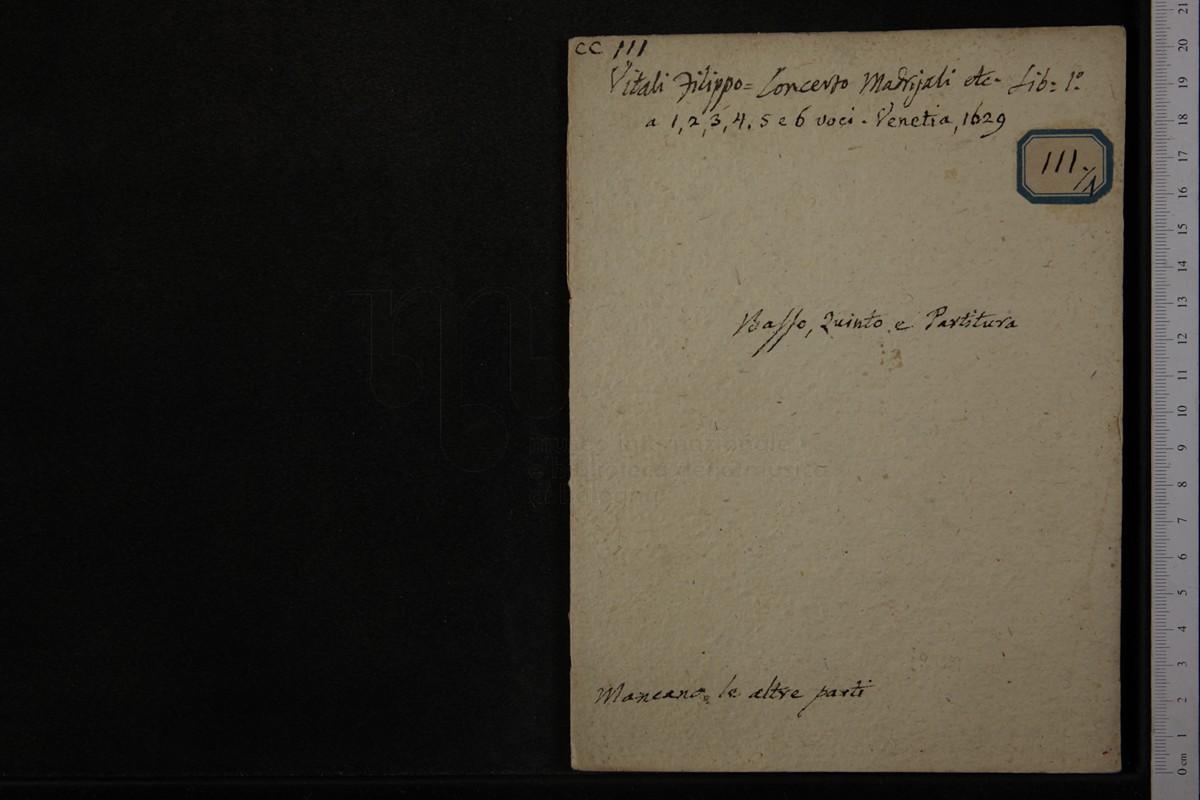 CC 111
Vitali Filippo = Concerto Madrigali etc. Lib: 1.º
a 1, 2, 3, 4, 5 e 6 voci. Venetia, 1629
111/1
Basso, Quinto e Partitura
museo internazionale
e biblioteca della musica
di bologna
Mancano le altre parti
0 cm 1 2 3 4 5 6 7 8 9 10 11 12 13 14 15 16 17 18 19 20 21